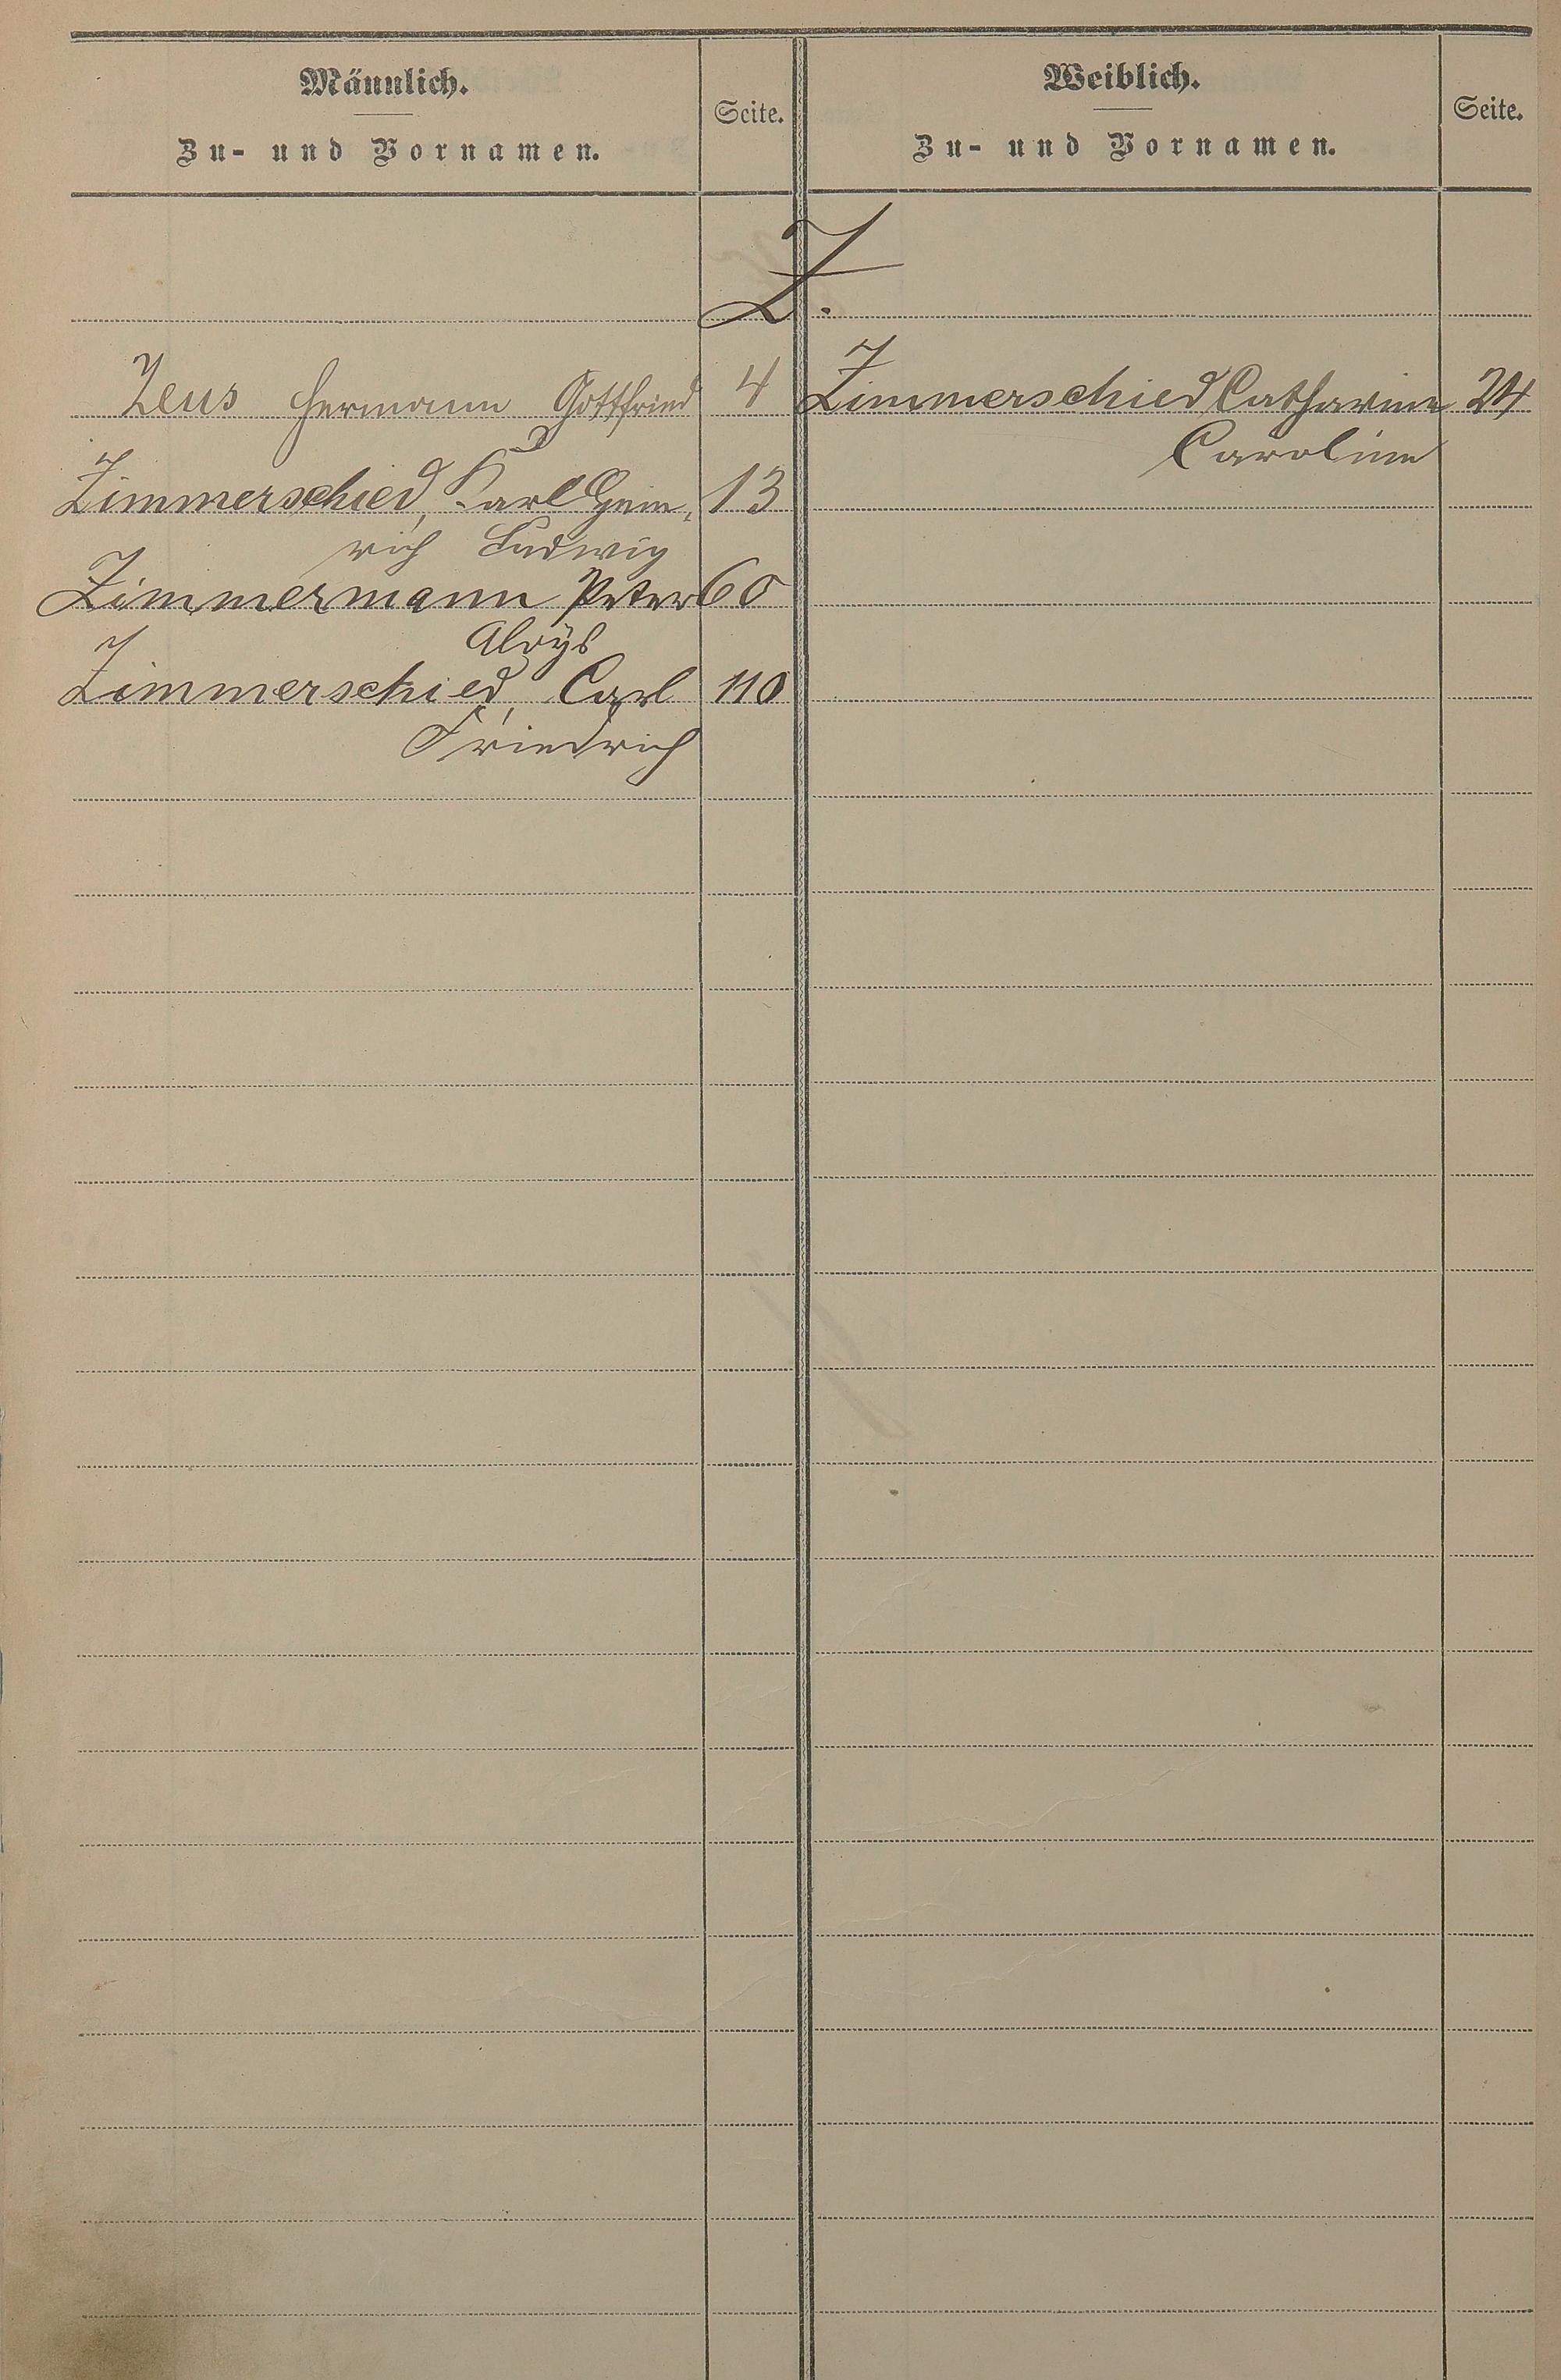 Männlich.
Zu- und Vornamen.
Seite.
Weiblich.
Zu- und Vornamen.
Seite.
Z.
Zeus Hermann Gottfried 4
Zimmerschied, Karl Hein-
rich Ludwig 13
Zimmermann Peter 60
Aloys
Zimmerschied, Carl 110
Friedrich
Zimmerschied Catharine 24
Caroline